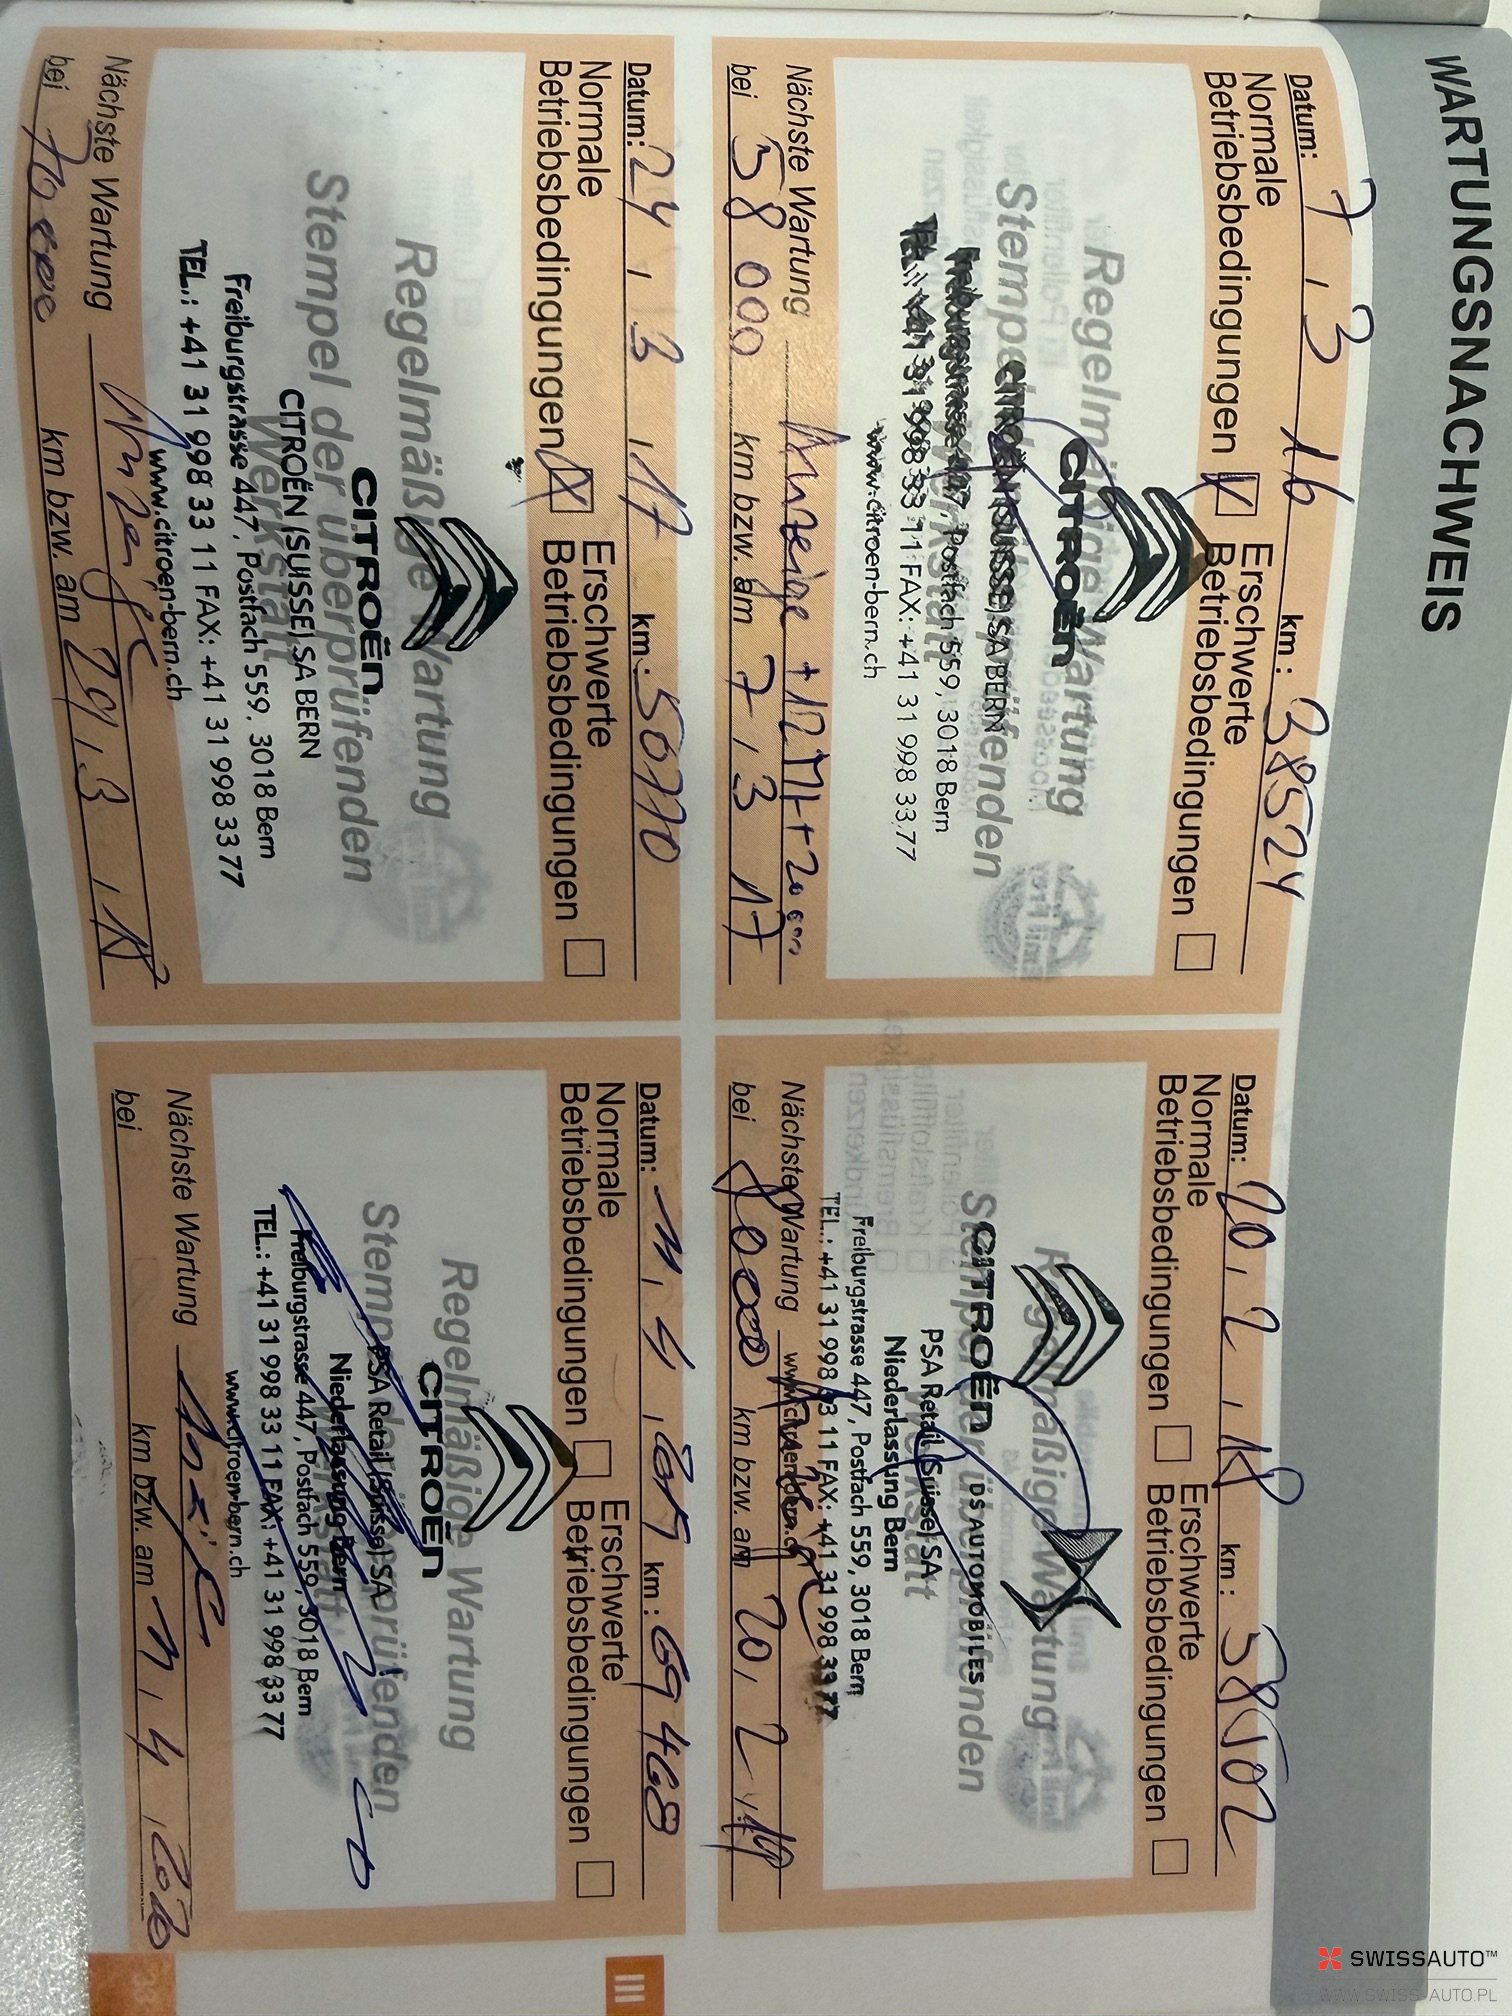 WARTUNGSNACHWEIS
Datum: 7 , 3 16 km : 38524
Normale Betriebsbedingungen Erschwerte Betriebsbedingungen
Regelmäßige Wartung
Stempel der überprüfenden
Werkstatt
CITROËN
CITROËN (SUISSE) SA BERN
Freiburgstrasse 447, Postfach 559, 3018 Bern
TEL.: +41 31 998 33 11 FAX: +41 31 998 33 77
www.citroen-bern.ch
Nächste Wartung Anzeige + 12 Mt + 20000
bei 58 000 km bzw. am 7 , 3 17
Datum: 20 , 2 , 18 km : 58502
Normale Betriebsbedingungen Erschwerte Betriebsbedingungen
Regelmäßige Wartung
Stempel der überprüfenden
Werkstatt
CITROËN DS AUTOMOBILES
PSA Retail (Suisse) SA
Niederlassung Bern
Freiburgstrasse 447, Postfach 559, 3018 Bern
TEL.: +41 31 998 33 11 FAX: +41 31 998 33 77
www.citroen-bern.ch
Nächste Wartung
bei 80000 km bzw. am 20 , 2 , 19
Datum: 24 , 3 , 17 km : 50770
Normale Betriebsbedingungen Erschwerte Betriebsbedingungen
Regelmäßige Wartung
Stempel der überprüfenden
Werkstatt
CITROËN
CITROËN (SUISSE) SA BERN
Freiburgstrasse 447, Postfach 559, 3018 Bern
TEL.: +41 31 998 33 11 FAX: +41 31 998 33 77
www.citroen-bern.ch
Nächste Wartung Anzeige
bei 70000 km bzw. am 24 , 3 , 18
Datum: 11 , 4 , 2019 km : 69468
Normale Betriebsbedingungen Erschwerte Betriebsbedingungen
Regelmäßige Wartung
Stempel der überprüfenden
Werkstatt
CITROËN
PSA Retail (Suisse) SA
Niederlassung Bern
Freiburgstrasse 447, Postfach 559, 3018 Bern
TEL.: +41 31 998 33 11 FAX: +41 31 998 33 77
www.citroen-bern.ch
Nächste Wartung Anzeige
bei km bzw. am 11 , 4 , 2020
III
SWISSAUTO™
WWW.SWISS-AUTO.PL